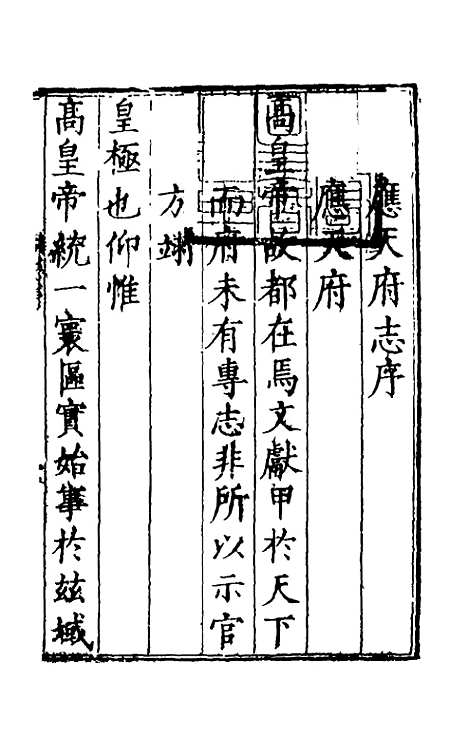 應天府志序
應天府
高皇帝故都在焉文獻甲於天下
而府未有專志非所以示官
方翊
皇極也仰惟
高皇帝統一寰區實始事於茲域